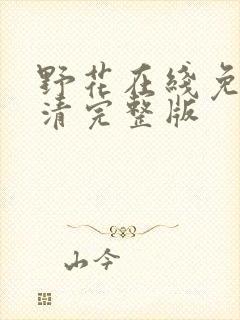 野花在线免
清完整版
山今